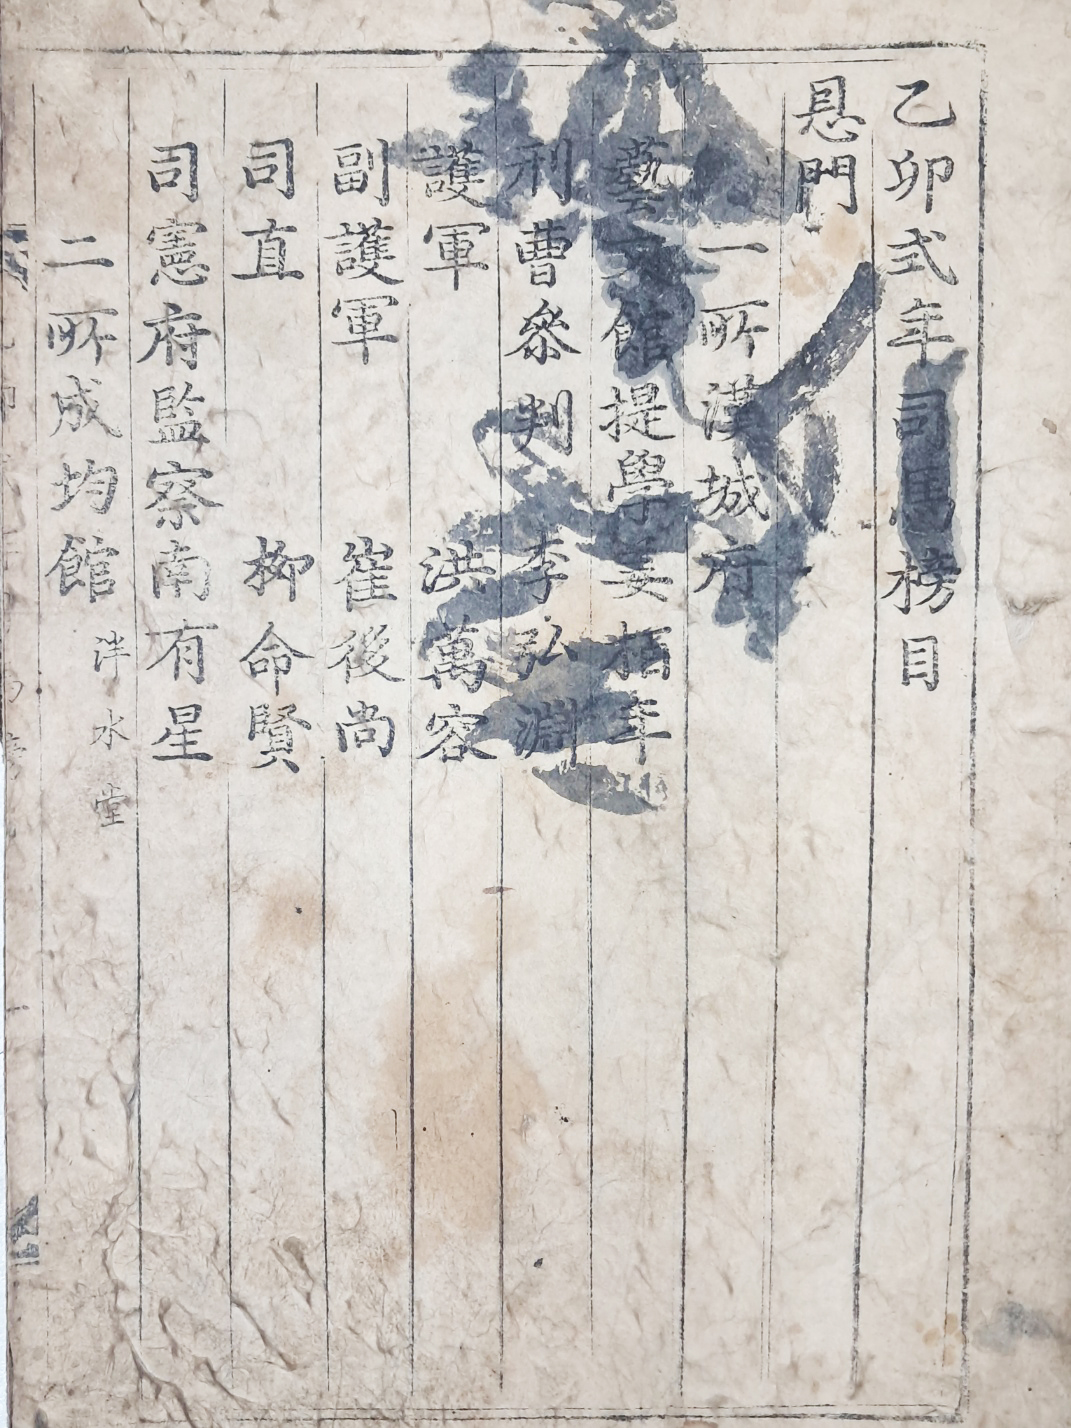 乙卯式年司馬榜目
恩門
一所漢城府
藝文館提學姜栢年
刑曹參判李弘淵
護軍洪萬容
副護軍崔後尚
司直柳命賢
司憲府監察南有星
二所成均館泮水堂